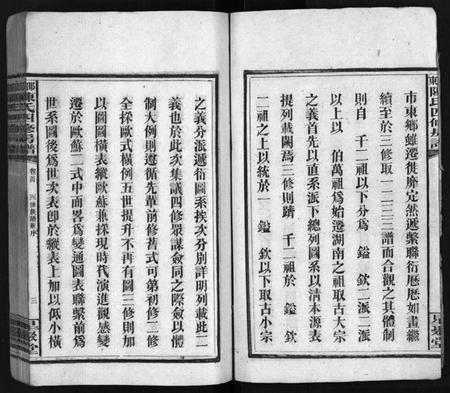 市東鄉雖遷徙靡定然遞繫聯衍歷歷如畫繼
續至於三修取一二三譜而合觀之其體制
則自 千二祖以下分爲 鎰 欽二派二派
以上以 伯萬祖爲始遷湖南之祖取古大宗
之義首先以直系派下總列圖系以清本源表
提列載闕焉三修則躋 千二祖於 鎰 欽
二祖之上以統於一 鎰 欽以下取古小宗
之義分派遞衍圖系挨次分別詳明列載此二
義也於此次集議四修衆謀僉同之際僉以體
制大例則遵循先輩前修舊式可第初修二修
全採歐式橫例五世提升不再有圖三修則加
以圖圖橫表縱歐蘇兼採現時代演進觀感變
遷於歐蘇二式中而畧爲變通圖表聯繫前爲
世系圖後爲世次表卽於縱表上加以低小橫
陳氏四修
卷首
四修
序
三
堂